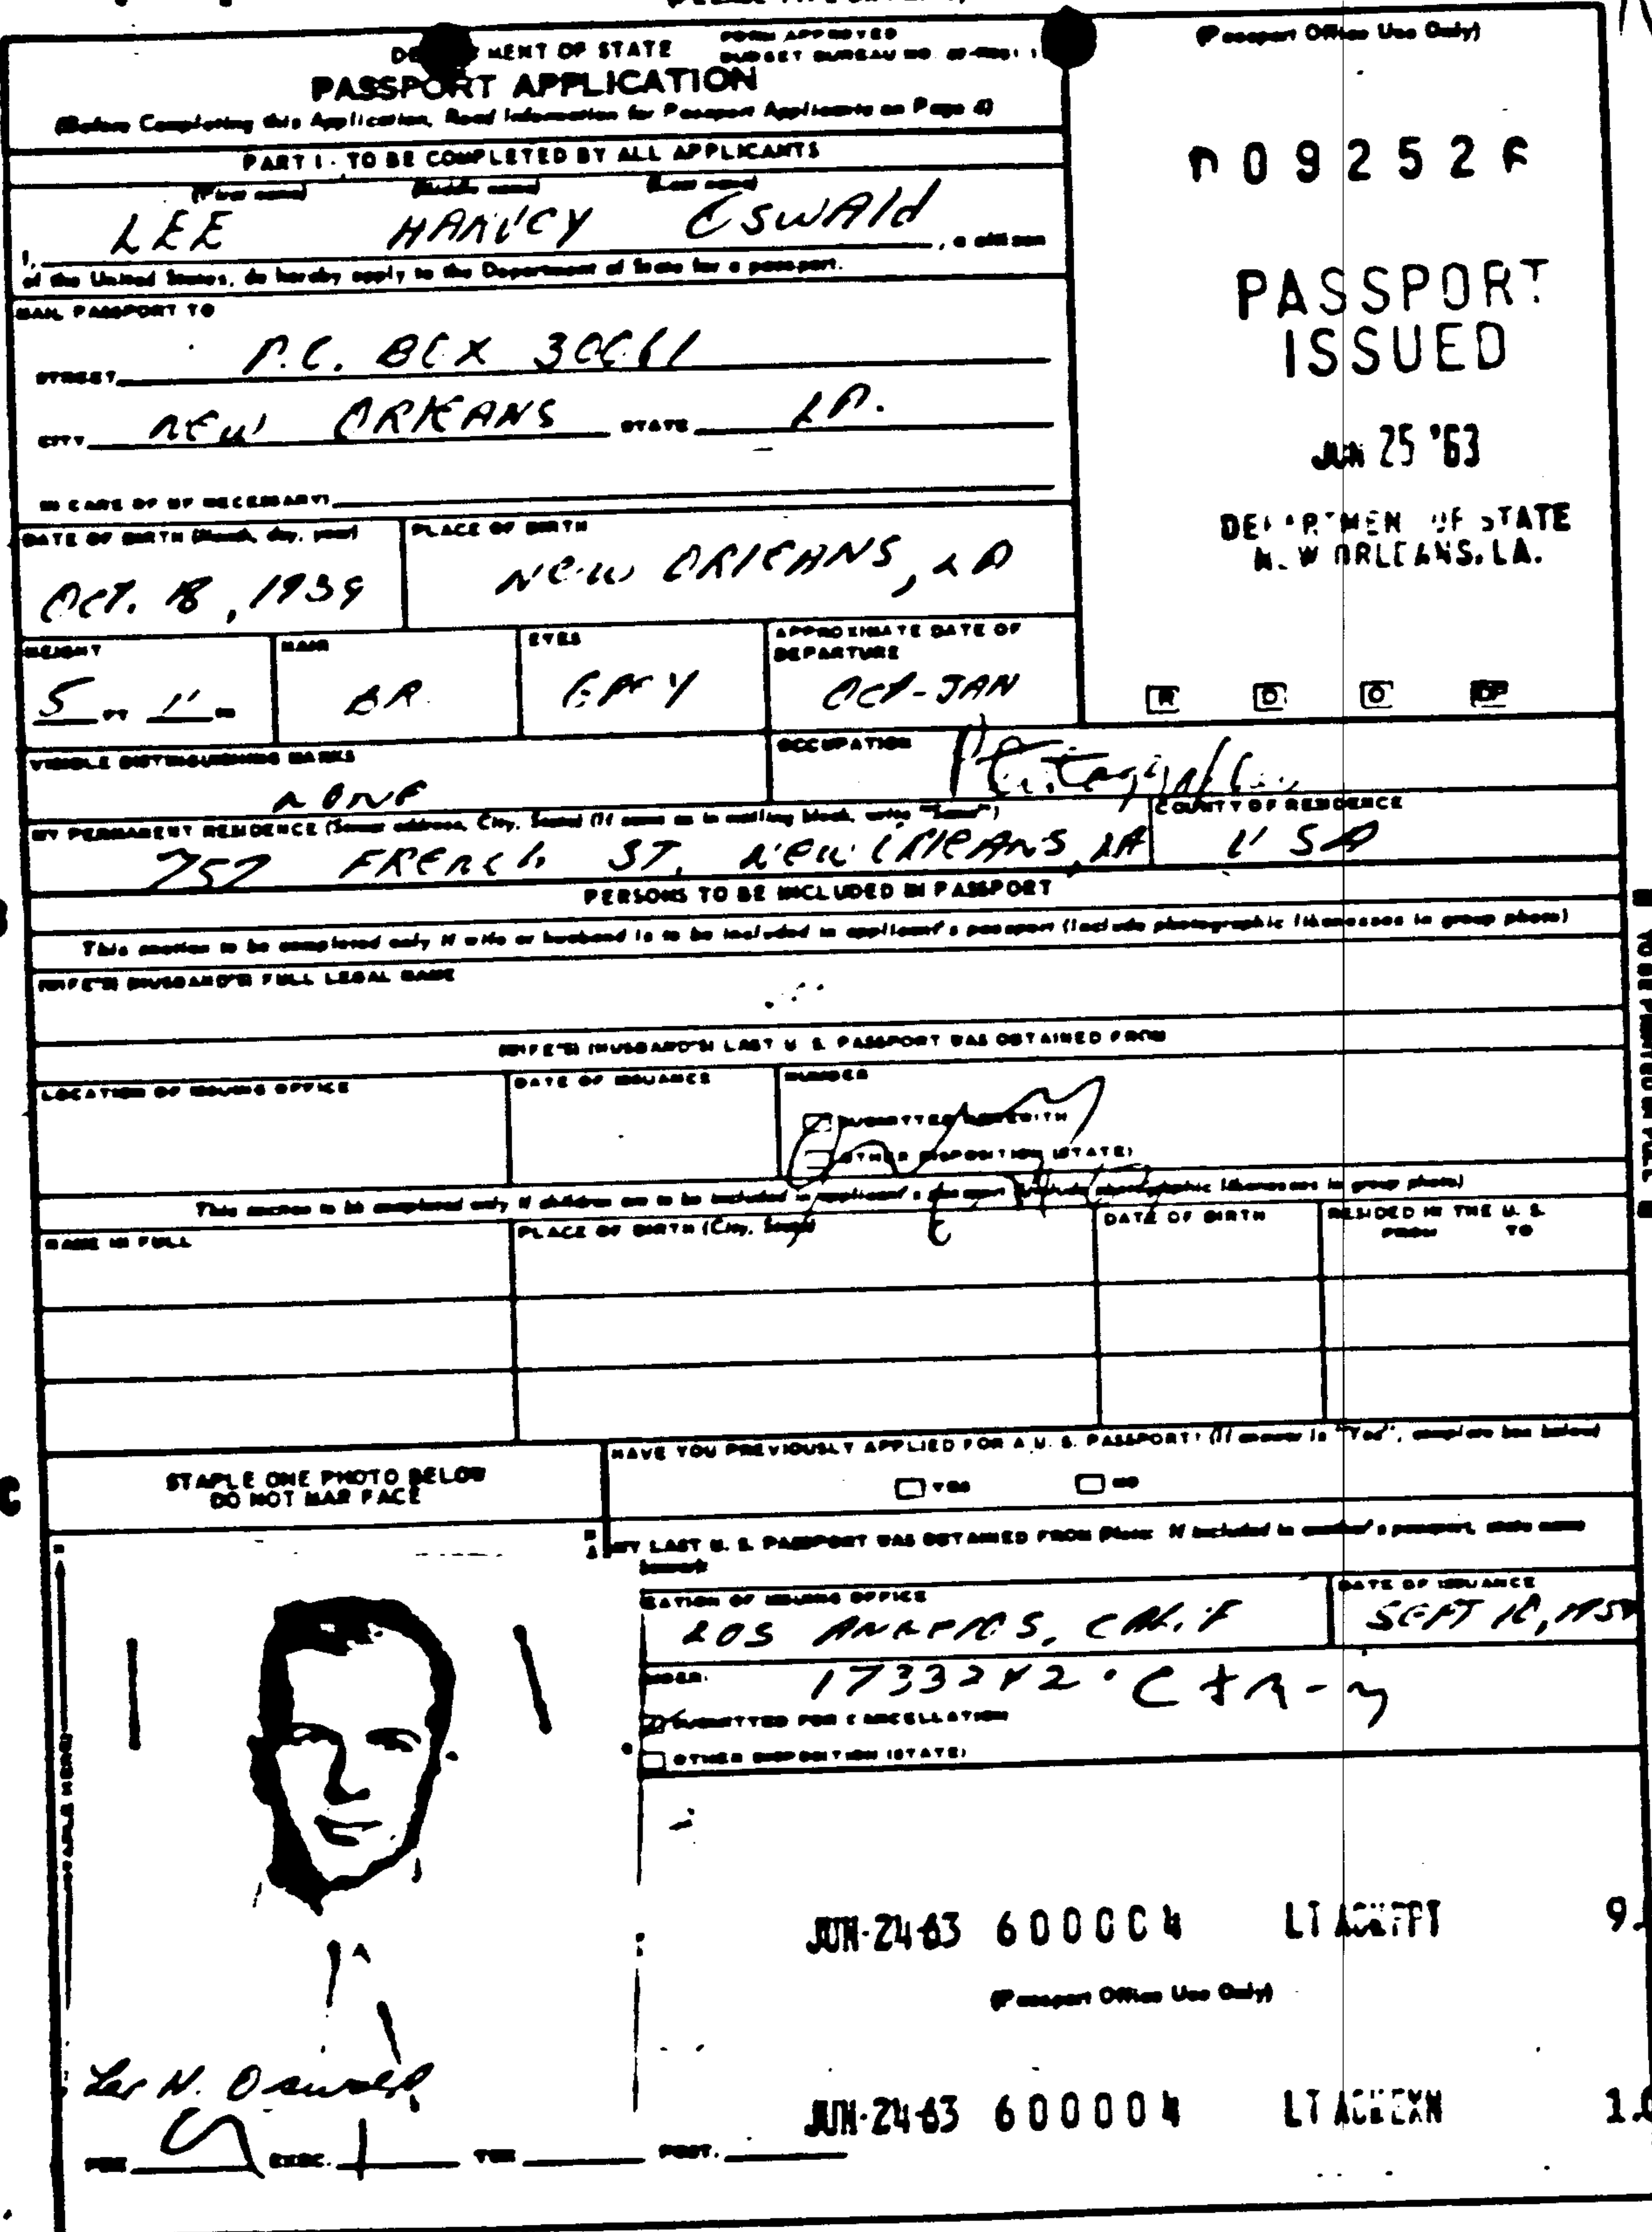 DEPARTMENT OF STATE
FORM APPROVED
BUDGET BUREAU NO.
(Passport Office Use Only)
PASSPORT APPLICATION
(Before Completing this Application, Read Information for Passport Applicants on Page 4)
PART I - TO BE COMPLETED BY ALL APPLICANTS
(First name) (Middle name) (Last name)
I, LEE HARVEY OSWALD, a citizen
of the United States, do hereby apply to the Department of State for a passport.
D092526
PASSPORT
ISSUED
JUN 25 '63
DEPARTMENT OF STATE
NEW ORLEANS, LA.
R D O DP
MAIL PASSPORT TO
STREET P.O. BOX 30061
CITY NEW ORLEANS STATE LA.
IN CARE OF (IF NECESSARY)
DATE OF BIRTH (Month, day, year)
OCT. 18, 1939
PLACE OF BIRTH
NEW ORLEANS, LA
HEIGHT
5 FT 11 IN
HAIR
BR.
EYES
GREY
APPROXIMATE DATE OF
DEPARTURE
OCT-JAN
VISIBLE DISTINGUISHING MARKS
NONE
OCCUPATION
Photographer
MY PERMANENT RESIDENCE (Street address, City, State) (If same as in mailing block, write "Same")
757 FRENCH ST. NEW ORLEANS, LA
COUNTY OF RESIDENCE
USA
PERSONS TO BE INCLUDED IN PASSPORT
This section to be completed only if wife or husband is to be included in applicant's passport (Include photographic likenesses in group photo)
(WIFE'S) (HUSBAND'S) FULL LEGAL NAME
(WIFE'S) (HUSBAND'S) LAST U. S. PASSPORT WAS OBTAINED FROM
LOCATION OF ISSUING OFFICE
DATE OF ISSUANCE
NUMBER
SUBMITTED HEREWITH
OTHER DISPOSITION (STATE)
This section to be completed only if children are to be included in applicant's passport (Include photographic likenesses in group photo)
NAME IN FULL
PLACE OF BIRTH (City, State)
DATE OF BIRTH
RESIDED IN THE U. S.
FROM TO
STAPLE ONE PHOTO BELOW
DO NOT MAR FACE
HAVE YOU PREVIOUSLY APPLIED FOR A U. S. PASSPORT? (If answer is "Yes", complete box below)
YES NO
MY LAST U. S. PASSPORT WAS OBTAINED FROM
CATION OF ISSUING OFFICE
LOS ANGELES, CALIF
DATE OF ISSUANCE
SEPT 10, 1959
MBER
1733242
SUBMITTED FOR CANCELLATION
OTHER DISPOSITION (STATE)
STAPLE HERE
JUN-24-63 600004 9.
(Passport Office Use Only)
Lee H. Oswald
JUN-24-63 600004 1.0
FEE EXEC. POST.